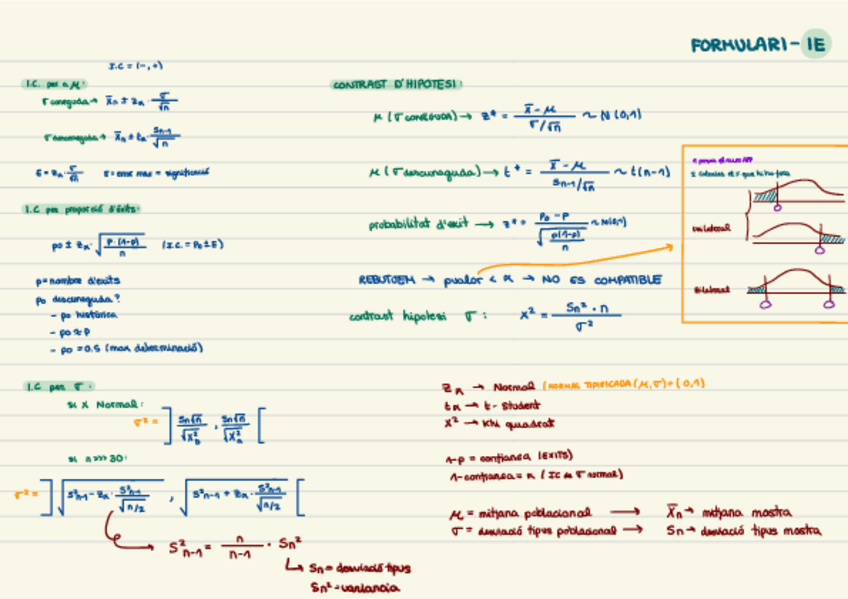 FORMULARI - IE
I.C = (-, +)
I.C. per a μ:
σ coneguda → X̄n ± zα · σ/√n
σ desconeguda → X̄n ± tα · Sn-1/√n
E = zα · σ/√n   E = error max = significació
I.C per proporció d'èxits:
po ± zα · √(p·(1-p)/n)   (I.C. = Po ± E)
p = nombre d'exits
po desconeguda?
- po històrica
- po ≈ p
- po = 0.5 (max determinació)
I.C per σ:
si X Normal:
σ² = ] Sn√n/√X²b , Sn√n/√X²a [
si n>>> 30:
σ² = ] √(S²n-1 - zα · S²n-1/√(n/2)) , √(S²n-1 + zα · S²n-1/√(n/2)) [
S²n-1 = n/(n-1) · Sn²
Sn = desviació tipus
Sn² = variancia
CONTRAST D'HIPOTESI:
μ (σ coneguda) → z* = (X̄ - μ)/(σ/√n) ~ N(0,1)
μ (σ desconeguda) → t* = (X̄ - μ)/(Sn-1/√n) ~ t(n-1)
probabilitat d'exit → z* = (Po - P)/√(p(1-p)/n) ~ N(0,1)
REBUTJEM → pvalor < α → NO ES COMPATIBLE
contrast hipotesi σ: X² = Sn²·n/σ²
unilateral
Bilateral
zα → Normal (NORMAL TIPIFICADA (μ,σ) = (0,1)
tα → t- Student
X² → Khi quadrat
1-p = confiança (EXITS)
1-confiança = α (IC de σ normal)
μ = mitjana poblacional → X̄n → mitjana mostra
σ = desviació tipus poblacional → Sn → desviació tipus mostra